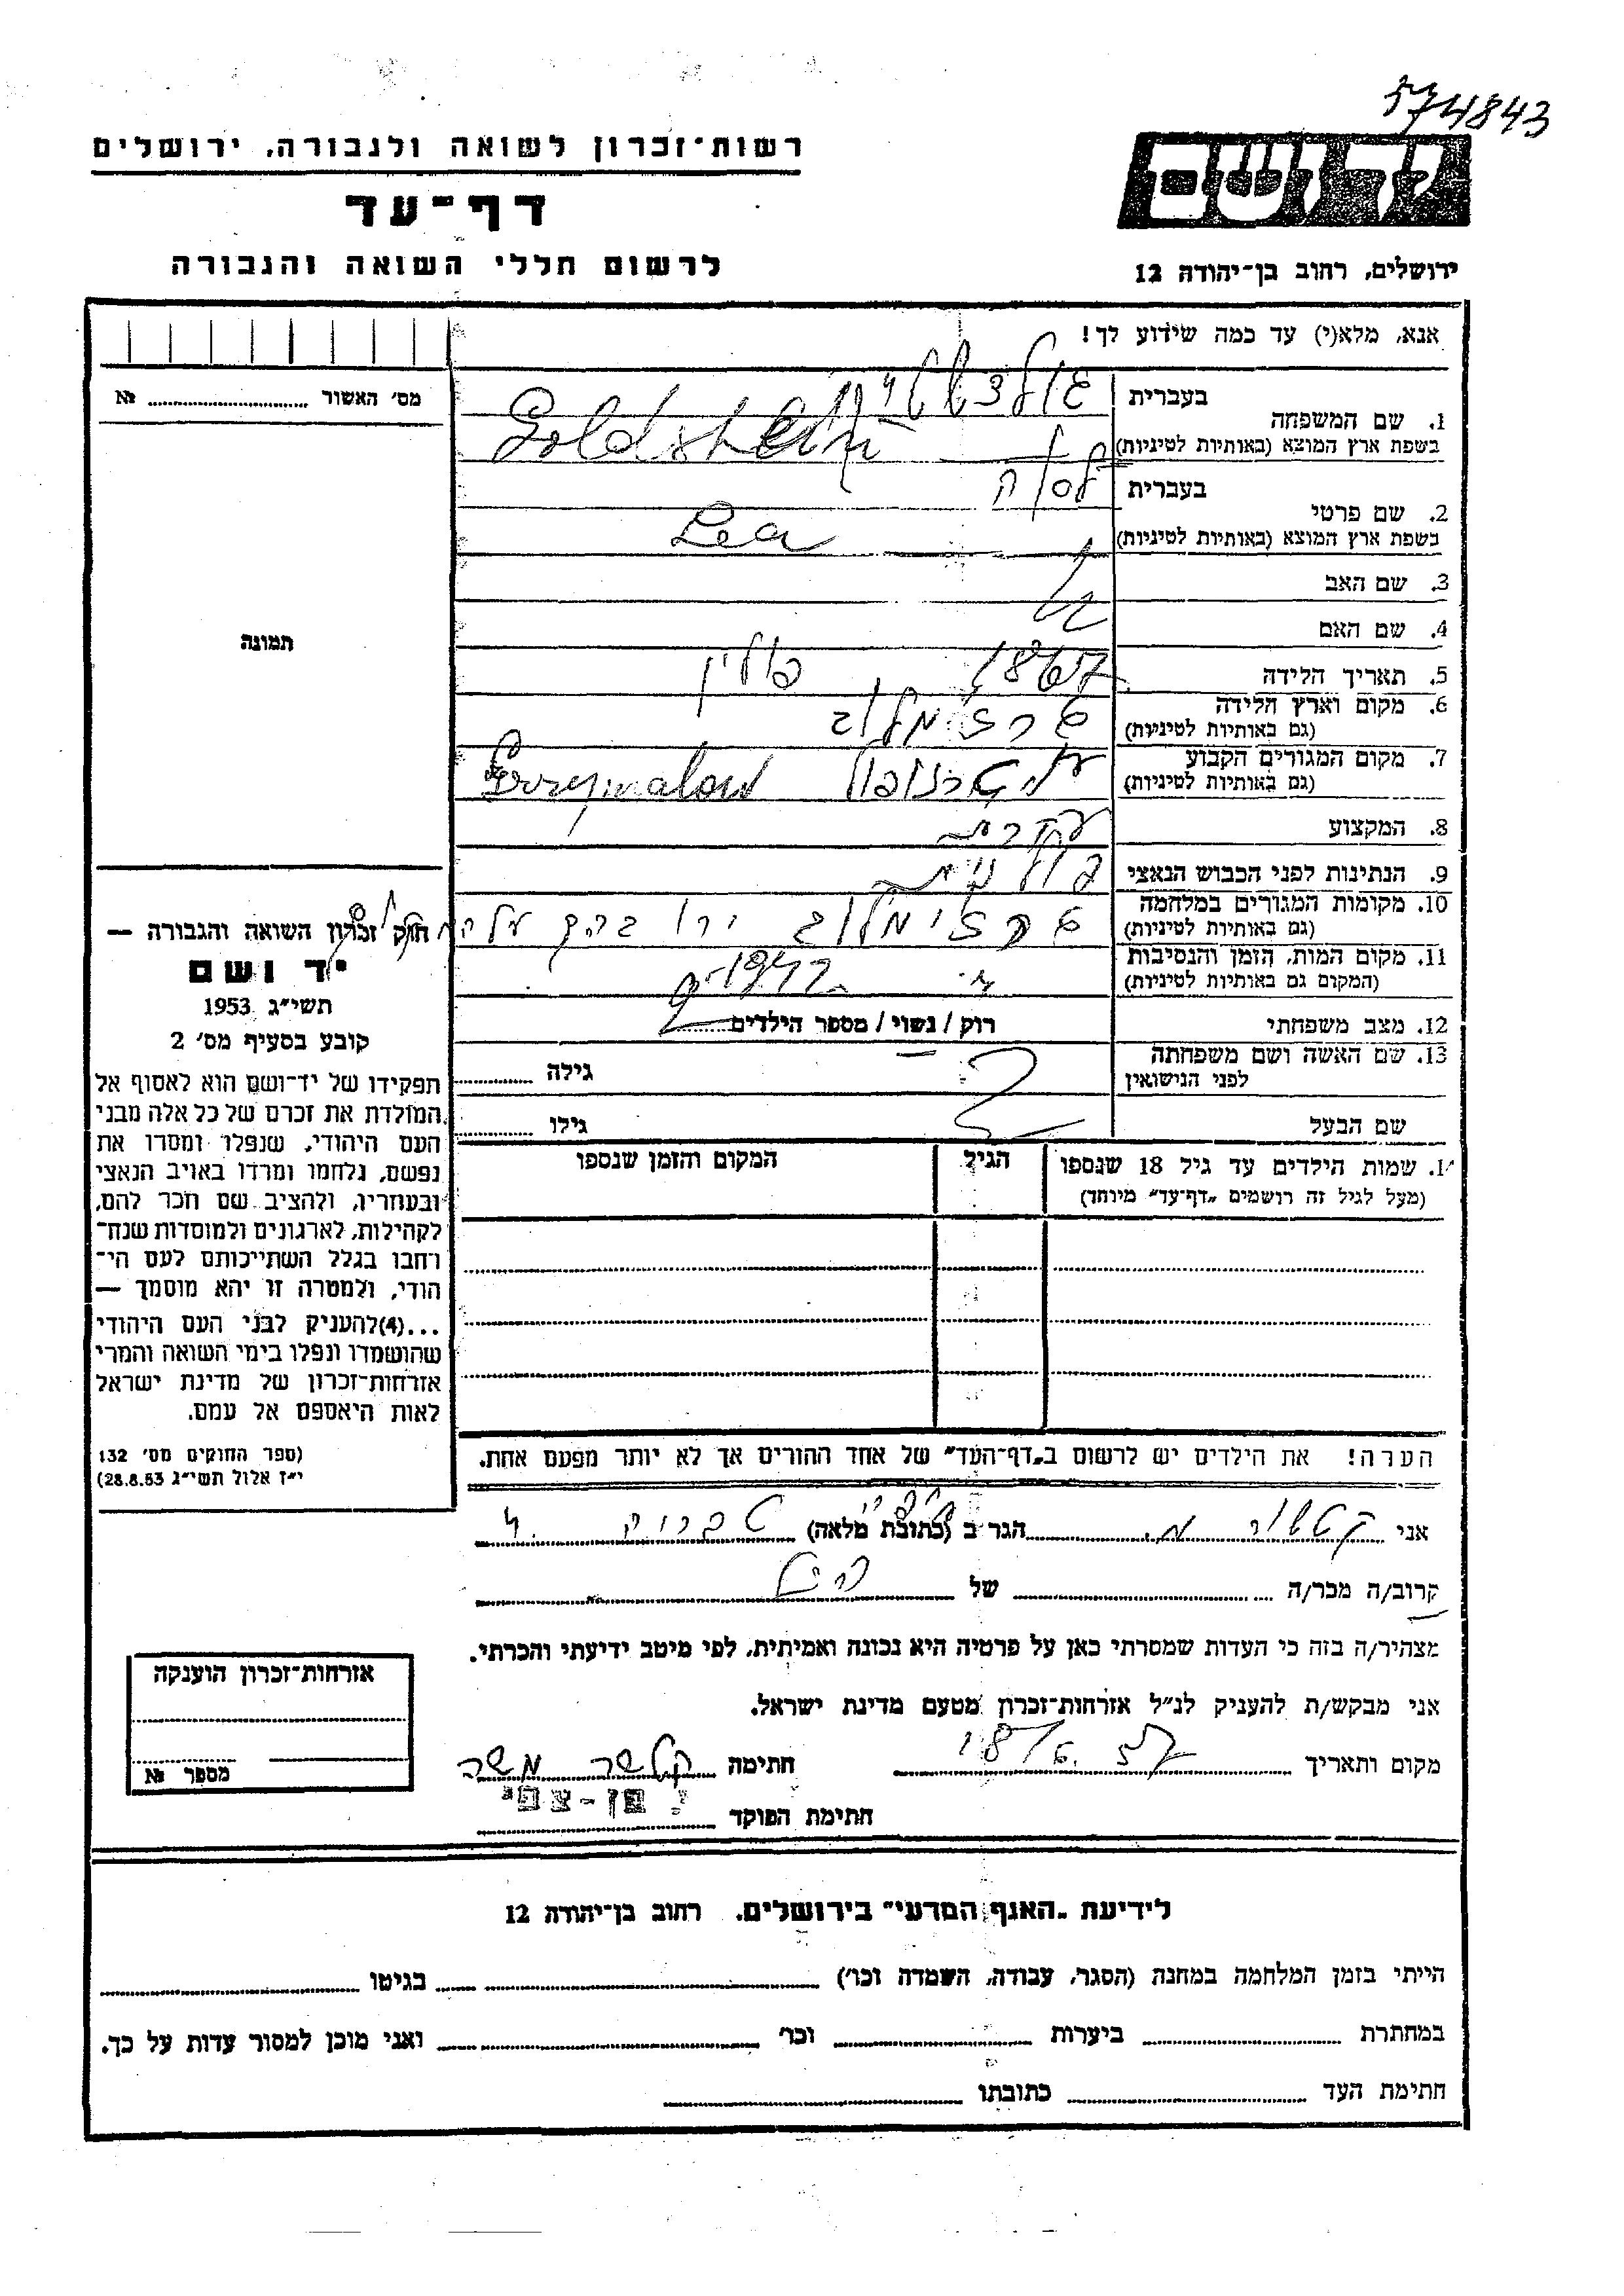 574843
רשות־זכרון לשואה ולגבורה, ירושלים
דף־עד
לרשום חללי השואה והגבורה
יד ושם
ירושלים, רחוב בן־יהודה 12
אנא, מלא(י) עד כמה שידוע לך!
מס׳ האשור № ....................
תמונה
חוק זכרון השואה והגבורה —
יד ושם
תשי״ג 1953
קובע בסעיף מס׳ 2
תפקידו של יד־ושם הוא לאסוף אל
המולדת את זכרם של כל אלה מבני
העם היהודי, שנפלו ומסרו את
נפשם, נלחמו ומרדו באויב הנאצי
ובעוזריו, ולהציב שם וזכר להם,
לקהילות, לארגונים ולמוסדות שנח־
רבו בגלל השתייכותם לעם הי־
הודי, ולמטרה זו יהא מוסמך —
...(4)להעניק לבני העם היהודי
שהושמדו ונפלו בימי השואה והמרי
אזרחות־זכרון של מדינת ישראל
לאות היאספם אל עמם.
(ספר החוקים מס׳ 132
י״ז אלול תשי״ג 28.8.53)
1. שם המשפחה
בעברית
בשפת ארץ המוצא (באותיות לטיניות) Goldstein
2. שם פרטי
בעברית
בשפת ארץ המוצא (באותיות לטיניות) Lea
3. שם האב
4. שם האם
5. תאריך הלידה 1867 פולין
6. מקום וארץ הלידה
(גם באותיות לטיניות)
7. מקום המגורים הקבוע
(גם באותיות לטיניות) Grzymalow
8. המקצוע עקרת
9. הנתינות לפני הכבוש הנאצי פולנית
10. מקומות המגורים במלחמה
(גם באותיות לטיניות)
11. מקום המות, הזמן והנסיבות 1942
(המקום גם באותיות לטיניות)
12. מצב משפחתי רוק / נשוי / מספר הילדים
13. שם האשה ושם משפחתה
לפני הנישואין גילה
שם הבעל גילו
14. שמות הילדים עד גיל 18 שנספו הגיל המקום והזמן שנספו
(מעל לגיל זה רושמים „דף־עד״ מיוחד)
הערה! את הילדים יש לרשום ב„דף־העד״ של אחד ההורים אך לא יותר מפעם אחת.
אני הגר ב (כתובת מלאה)
קרוב/ה מכר/ה של
מצהיר/ה בזה כי העדות שמסרתי כאן על פרטיה היא נכונה ואמיתית, לפי מיטב ידיעתי והכרתי.
אני מבקש/ת להעניק לנ״ל אזרחות־זכרון מטעם מדינת ישראל.
מקום ותאריך 18/6.57 חתימה משה
חתימת הפוקד בן-צבי
אזרחות־זכרון הוענקה
מספר №
לידיעת „האגף המדעי״ בירושלים. רחוב בן־יהודה 12
הייתי בזמן המלחמה במחנה (הסגר, עבודה, השמדה וכו׳) בגיטו
במחתרת ביערות וכו׳ ואני מוכן למסור עדות על כך.
חתימת העד כתובתו